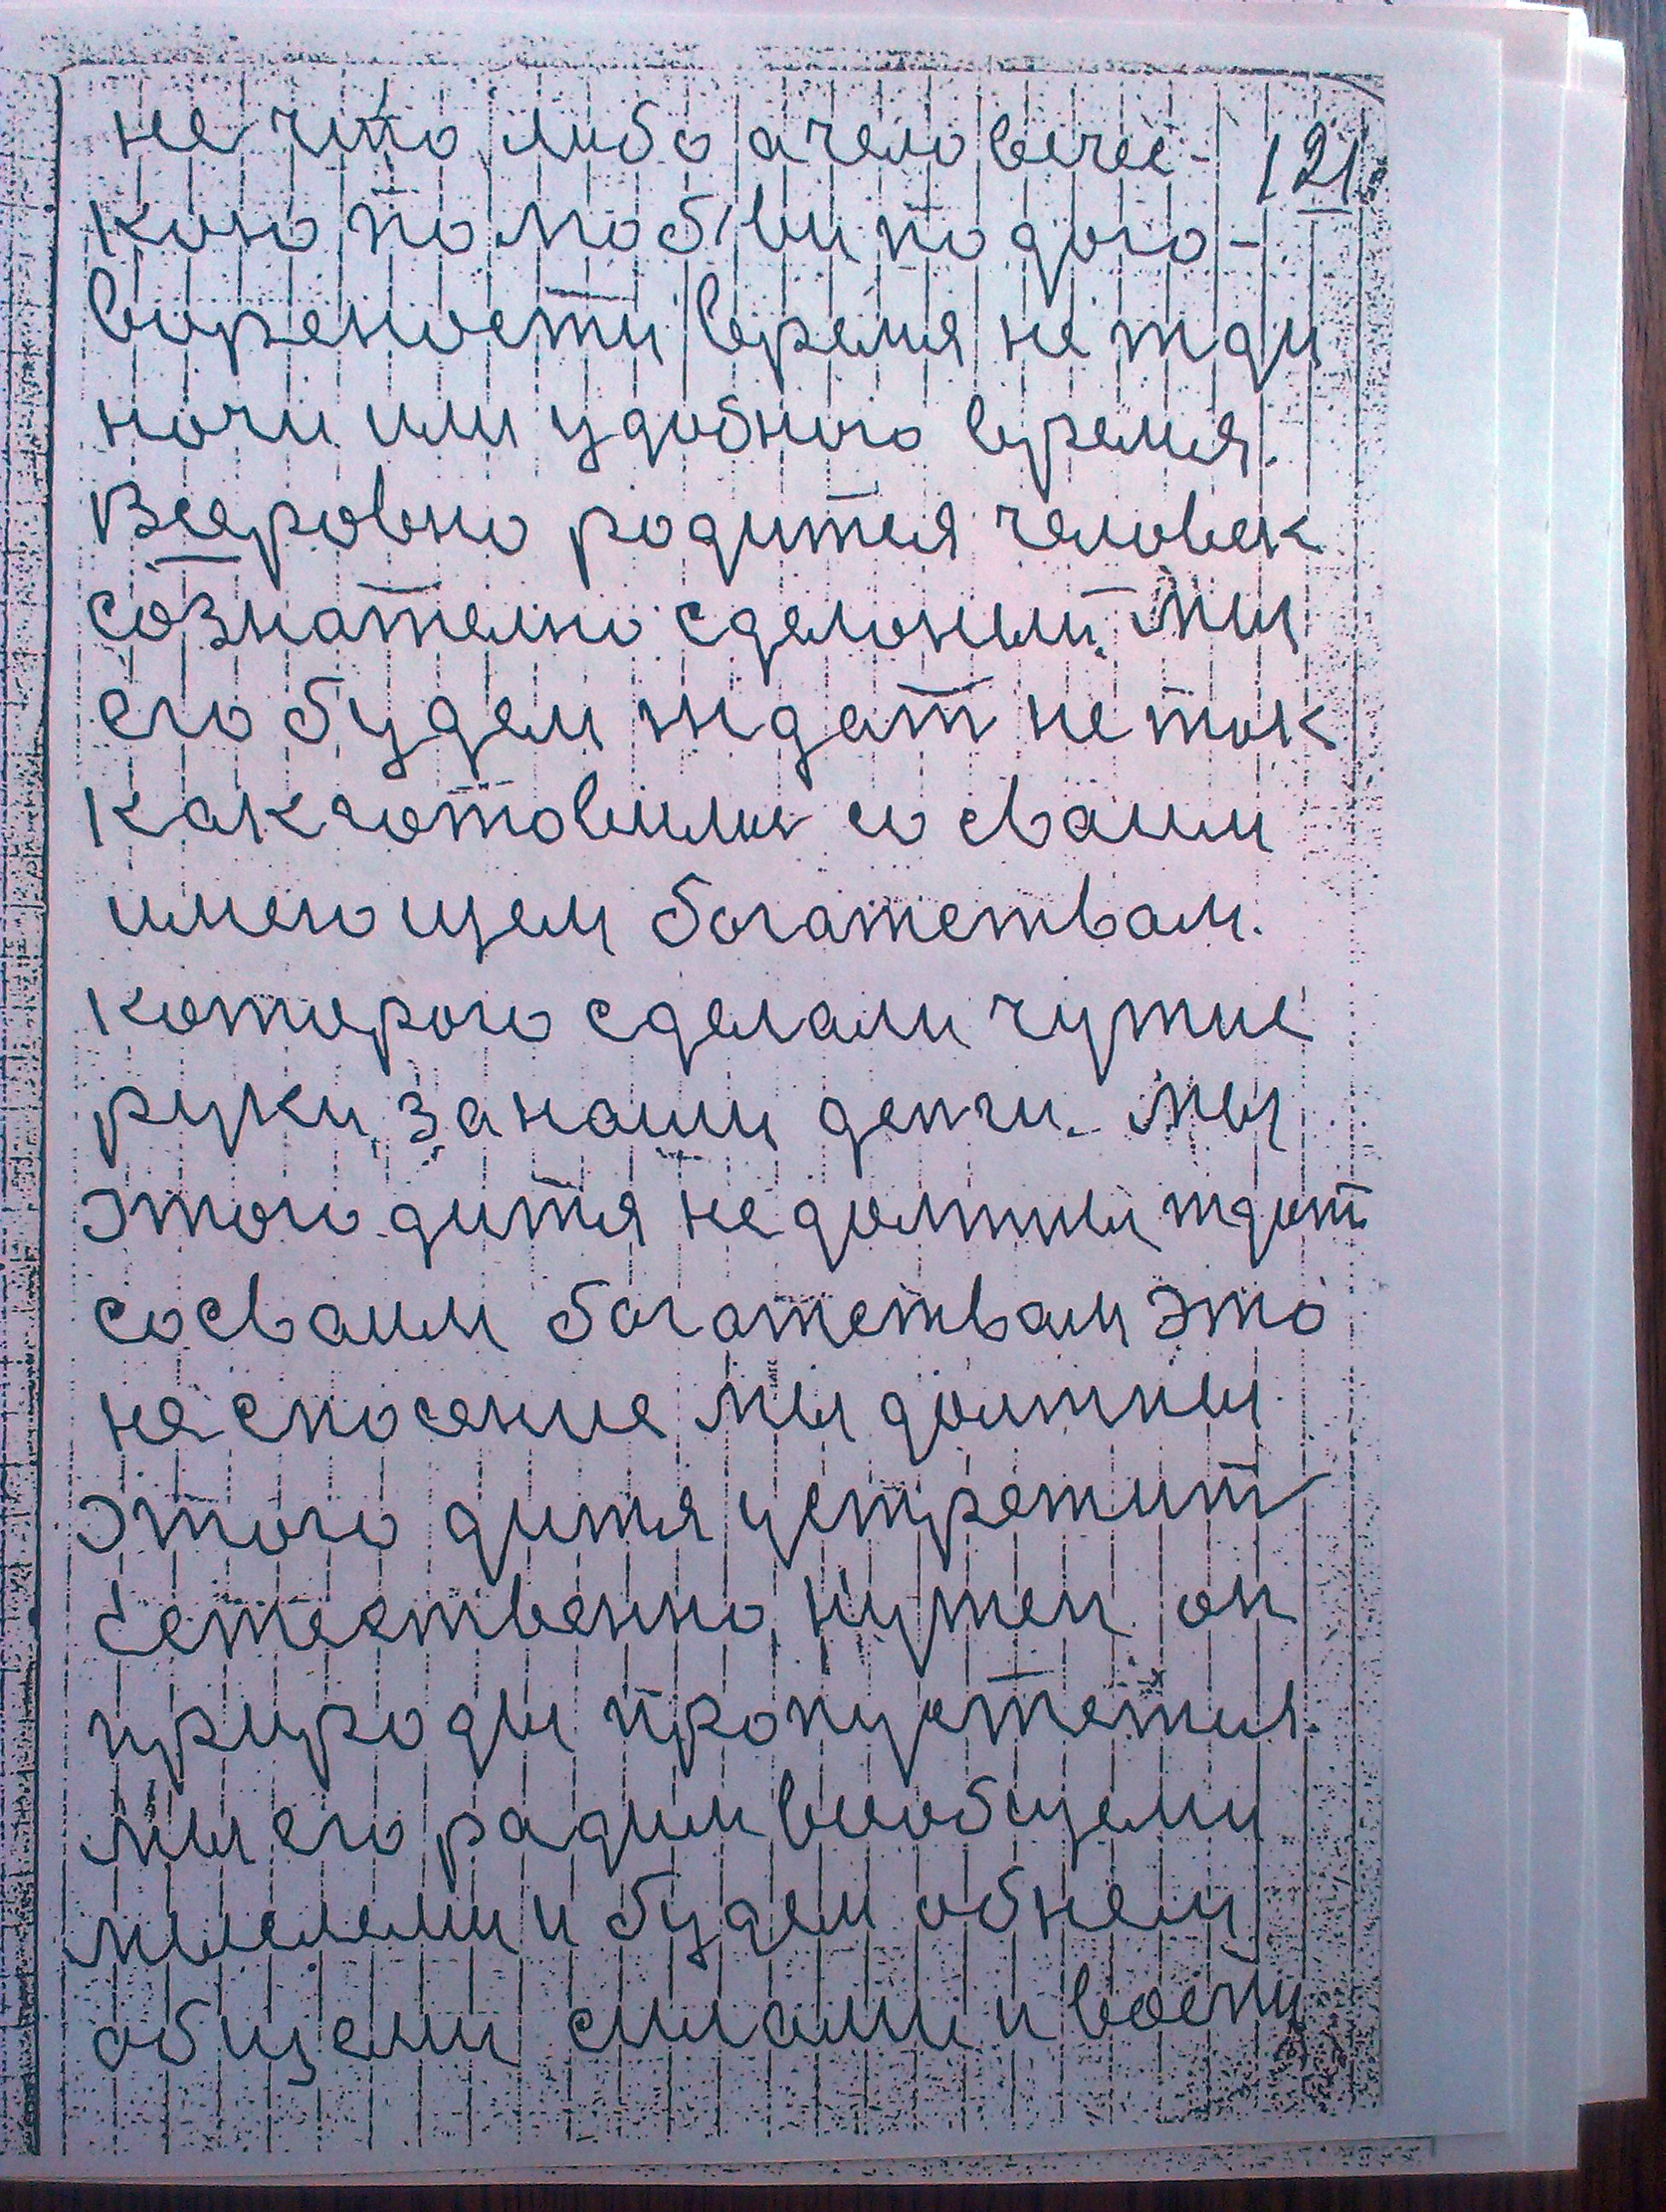 не что либо а человечес- 121
кою по любви по дого-
ворености время не жди
ночи или удобного время.
Всеровно родится человек
сознателно сделоный. Мы
его будем ждат не так
как готовились со сваим
имеющем богатетвам.
которого сделали чужие
руки, за наши денги. Мы
этого дитя не должны ждат
со сваим богатетвам это
не спосение мы должны
этого дитя устрежит
Естественно, нужен он
природы пропустется.
Мы его радим вообщеми
мыслеми и будем об нем
общеми силами и воспи